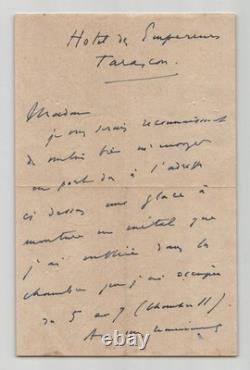 Hotel des Empereurs
Tarascon.
Madame
je vous serais reconnaissant
de vouloir bien m'envoyer
en port dû à l'adresse
ci dessus une glace à
monture en métal que
j'ai oubliée dans la
chambre que j'ai occupée
du 5 au 7 (Chambre 11)